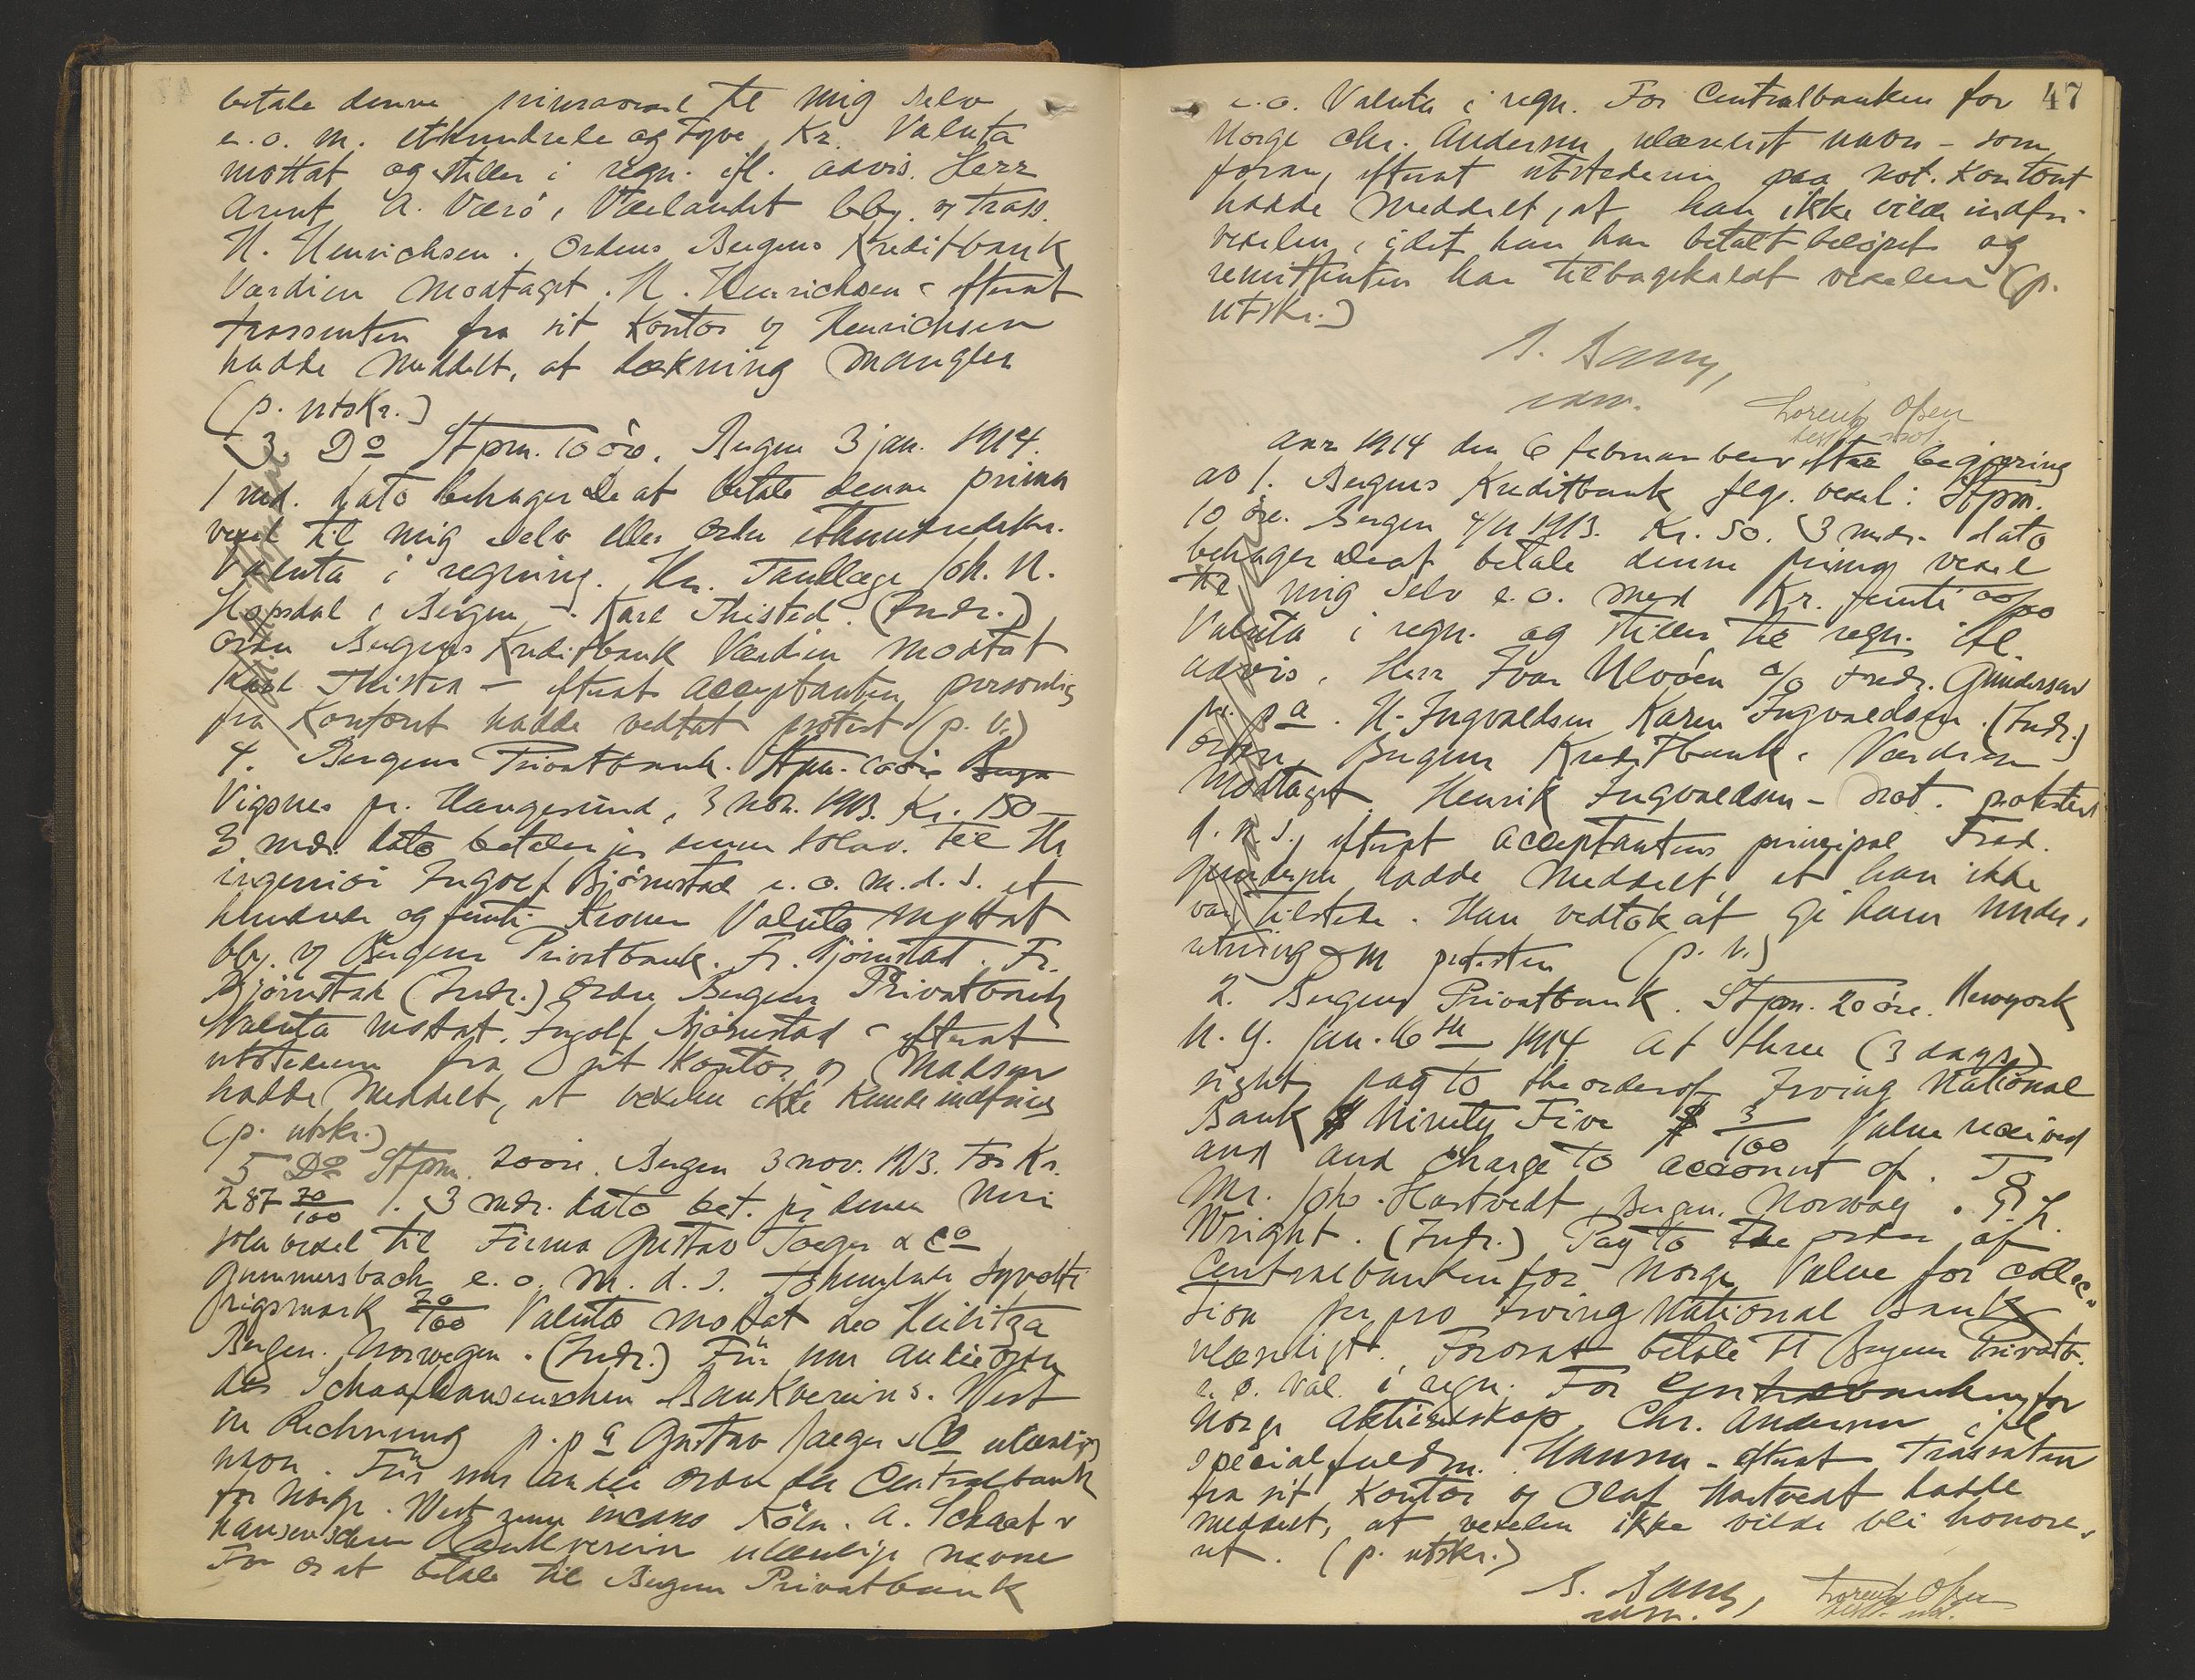 betale denne primavexel til mig selv
e. o. m. ethundrede og Tyve Kr. Valuta
mottat og stilles i regn. ifl. advis. Herr
Arent A. Værö, Værlandet bby. og Trass.
H. Henrichsen. Ordens Bergens Kreditbank
Værdien modtaget. H. Henrichsen - efterat
trassenten fra sit Kontor og Henrichsen
hadde meddelt, at dækning mangler
(p. utskr.)
3. Do Stpm. 10 öre. Bergen 3 jan. 1914.
1 md. dato behager De at betale denne prima
vexel til mig selv eller Ordre ethundredekr.
Valuta i regning. Hr. Tandlæge Joh. N.
Hopsdal, Bergen - Karl Thisted. (Indr.)
Ordre Bergens Kreditbank Værdien modtat
Karl Thisted - efterat acceptanten personlig
fra Kontoret hadde vedtat protest (p. v.)
4. Bergens Privatbank. Stpm. 10 öre Bergen
Vigsnes pr. Haugesund, 3 nov. 1913. Kr. 150 -
3 mdr. dato betaler jeg denne solav. til Hr
ingeniör Ingolf Björnstad e. o. m. d. s. et
hundrede og femti Kroner Valuta mottat
bby. og Bergens Privatbank. Fr. Björnstad. Fr.
Björnstad (Indr.) Ordre Bergens Privatbank
Valuta mottat. Ingolf Björnstad - efterat
utstederen fra sit Kontor og Madsen
hadde meddelt, at vexelen ikke kunde indfries
(p. utskr.)
5 Do Stpm. 20 öre. Bergen 3 nov. 1913. For Kr.
287 70/100 /. 3 mdr. dato bet. jeg denne min
sola vexel til Firma Gustav Jaeger & Co
Gummersbach e. o. m. d. s. tohundrede syvotti
rigsmark 70/100 Valuta mottat Leo Heilitza
Bergen. Norwegen. (Indr.) Für uns an die Ordre
des Schaaffhausenschen Bankvereins. Wert
in Rechnung p. pa Gustav Jaeger & Co ulæselig
navn. Für uns an die Ordre der Centralbank
for Norge. Wert zum incasso Köln. A. Schaaf
hausenschen Bankverein ulæselige navne
For os at betale til Bergens Privatbank
47
e. o. Valuta i regn. For Centralbanken for
Norge Chr. Andersen, ulæselig navn - som
foran, efterat utstederen paa not. Kontoret
hadde meddelt, at han ikke vilde indfri
vexelen, idet han har betalt belöpet og
remittenten har tilbagekaldt vexelen (p.
utskr.)
Lorentz Olsen
Aar 1914 den 6 februar blev efter begjæring
av 1. Bergens Kreditbank flg. vexel: Stpm.
10 öre. Bergen 4/11 1913. Kr. 50. 3 mdr. dato
behager De at betale denne prima vexel
til mig selv e. o. med Kr. femti 00/00
Valuta i regn. og stilles til regn. ifl.
advis. Herr Ivar Ulvöen c/o Fredr. Gundersen
pr. pa. H. Ingvaldsen Karen Ingvaldsen. (Indr.)
ordre, Bergens Kreditbank. Værdien
modtaget. Henrik Ingvaldsen - not. protestert
d. n. s., efterat acceptantens principal Fred.
Gundersen hadde meddelt at han ikke
var tilstede. Han vedtok at gi ham under-
retning om protesten (p. v.)
2. Bergens Privatbank. Stpm. 20 öre. Newyork
N. Y. Jan. 16th 1914. At three (3 days)
sight pay to the order of Irving National
Bank $ Ninety Five $ 3/100 Value received
and and charge to account of. To
Mr. Joh. Hartvedt, Bergen. Norway. G. L.
Wright. (Indr.) Pay to the order of
Centralbanken for Norge Value for collec-
tion per pro Irving National Bank
ulæseligt. For os at betale til Bergens Privatb.
e. o. Val. i regn. For Centralbanken for
Norge Aktieselskap. Chr. Andersen ifl
specialfuldm. Hansen - efterat Trassaten
fra sit Kontor og Olaf Hartvedt hadde
meddelt, at vexelen ikke vilde bli honore-
ret. (p. utskr.)
Lorentz Olsen